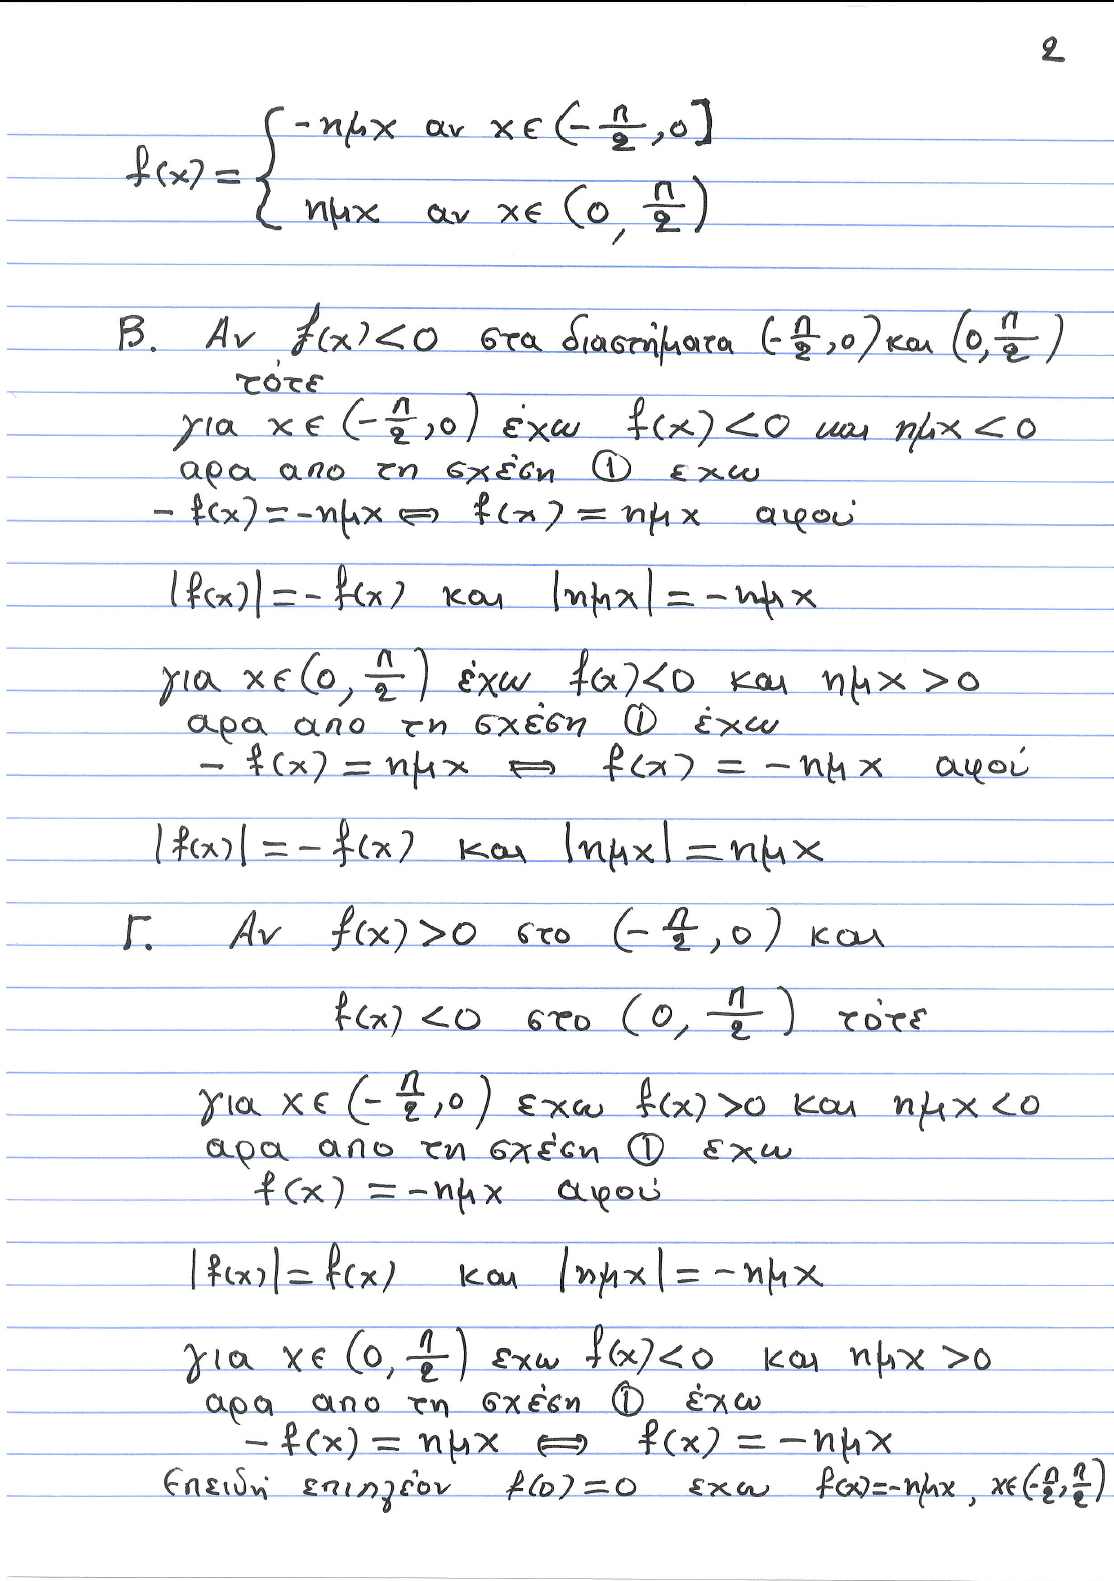 2
f(x) = { -ημx αν x∈(-π/2, 0]
ημx αν x∈(0, π/2)
Β. Αν f(x)<0 στα διαστήματα (-π/2,0) και (0,π/2)
τότε
για x∈(-π/2,0) έχω f(x)<0 και ημx<0
αρα απο τη σχέση ① εχω
-f(x)=-ημx ⇔ f(x)=ημx αφού
|f(x)|=-f(x) και |ημx|=-ημx
για x∈(0,π/2) έχω f(x)<0 και ημx>0
αρα απο τη σχέση ① έχω
-f(x)=ημx ⇔ f(x)=-ημx αφού
|f(x)|=-f(x) και |ημx|=ημx
Γ. Αν f(x)>0 στο (-π/2,0) και
f(x)<0 στο (0,π/2) τότε
για x∈(-π/2,0) εχω f(x)>0 και ημx<0
αρα απο τη σχέση ① εχω
f(x)=-ημx αφού
|f(x)|=f(x) και |ημx|=-ημx
για x∈(0,π/2) εχω f(x)<0 και ημx>0
αρα απο τη σχέση ① έχω
-f(x)=ημx ⇔ f(x)=-ημx
Επειδή επιπλέον f(0)=0 εχω f(x)=-ημx, x∈(-π/2,π/2)